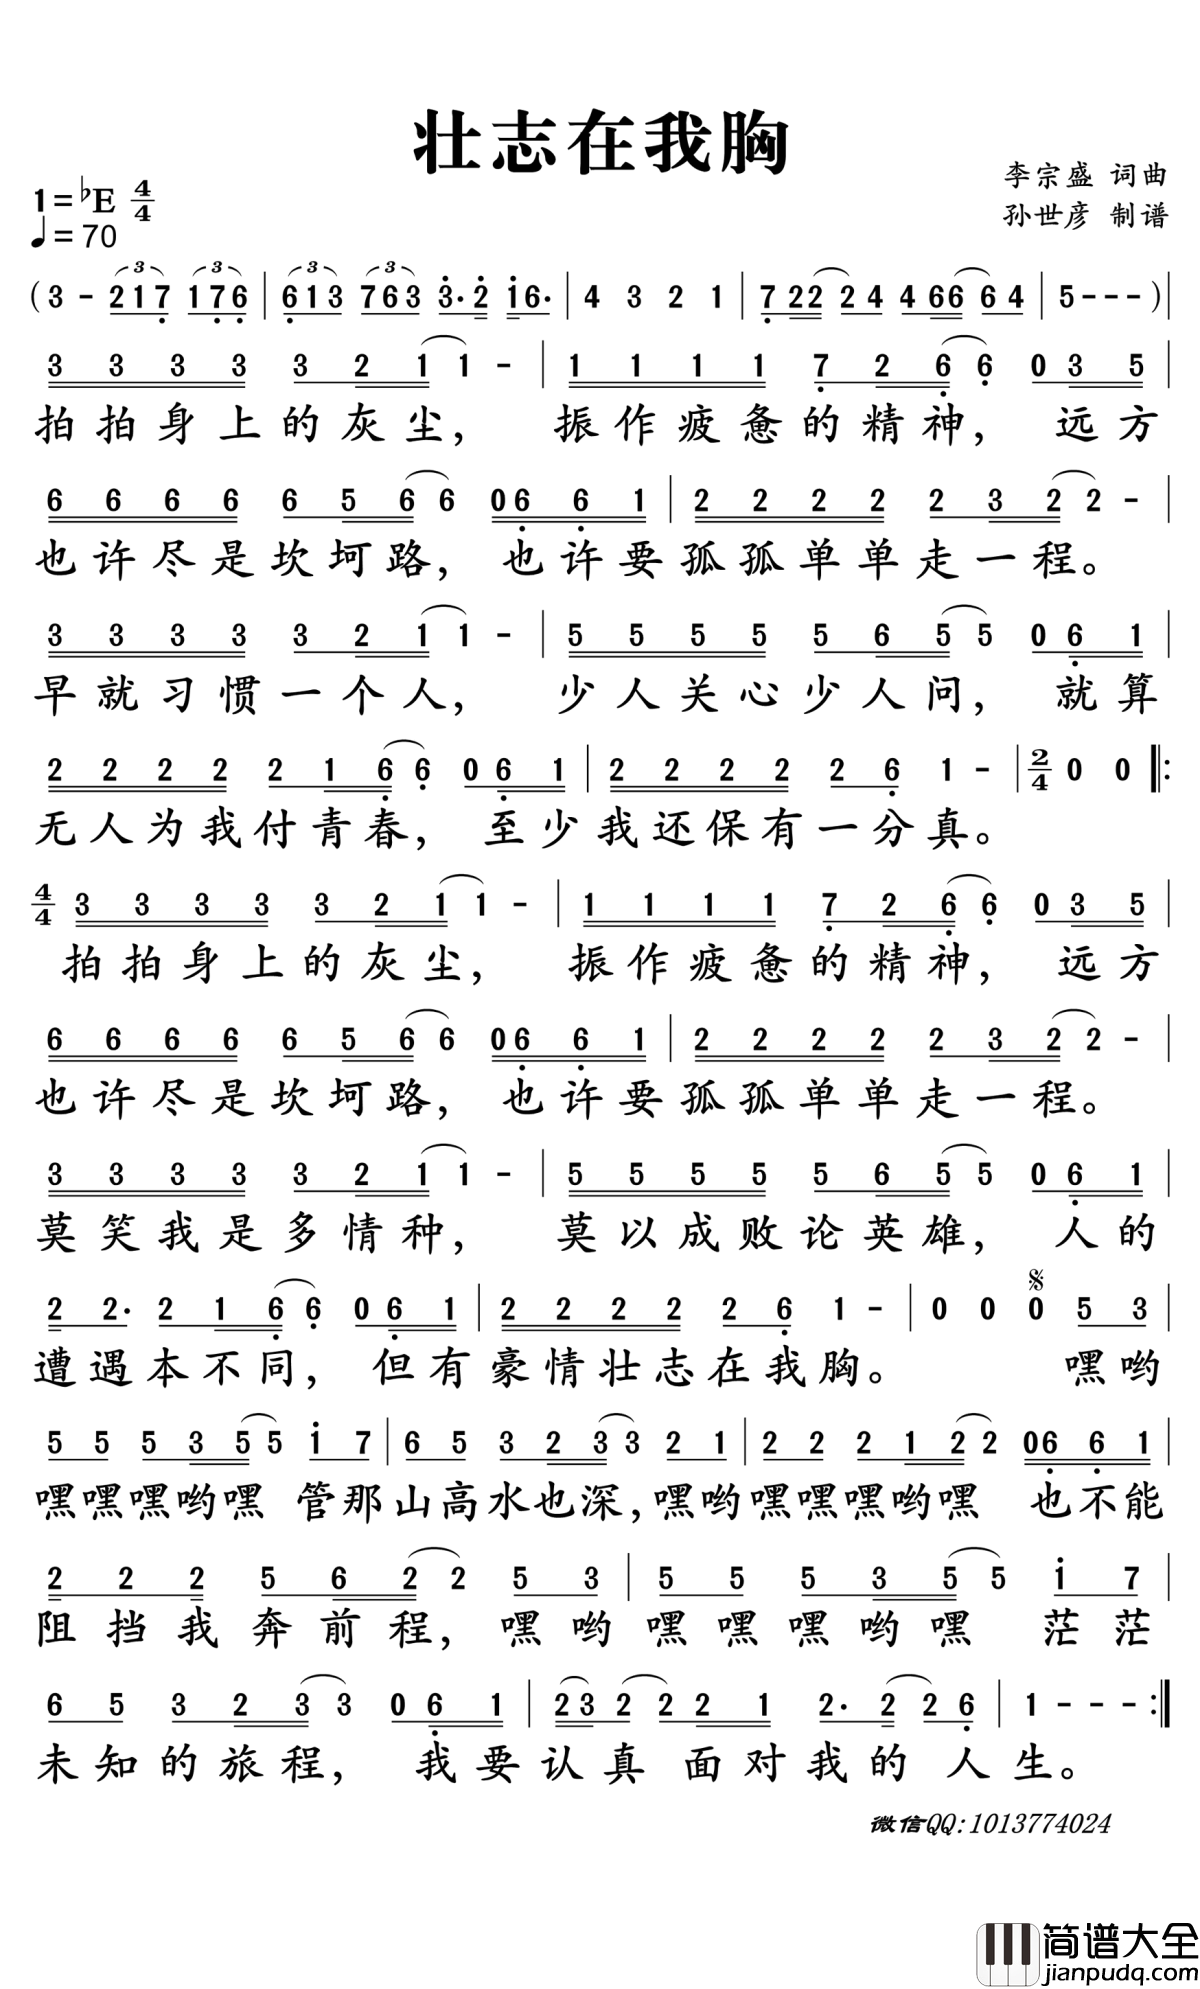 壮志在我胸
李宗盛 词曲
孙世彦 制谱
1=♭E 4/4
♩=70
(3 - 217 176 | 613 763 3·2 16· | 4 3 2 1 | 7 22 2 4 4 66 6 4 | 5 - - - ) |
3 3 3 3 3 2 1 1 - | 1 1 1 1 7 2 6 6 0 3 5 |
拍拍身上的灰尘, 振作疲惫的精神, 远方
6 6 6 6 6 5 6 6 06 6 1 | 2 2 2 2 2 3 2 2 - |
也许尽是坎坷路, 也许要孤孤单单走一程。
3 3 3 3 3 2 1 1 - | 5 5 5 5 5 6 5 5 0 6 1 |
早就习惯一个人, 少人关心少人问, 就算
2 2 2 2 2 1 6 6 0 6 1 | 2 2 2 2 2 6 1 - | 2/4 0 0 ‖:
无人为我付青春, 至少我还保有一分真。
4/4 3 3 3 3 3 2 1 1 - | 1 1 1 1 7 2 6 6 0 3 5 |
拍拍身上的灰尘, 振作疲惫的精神, 远方
6 6 6 6 6 5 6 6 06 6 1 | 2 2 2 2 2 3 2 2 - |
也许尽是坎坷路, 也许要孤孤单单走一程。
3 3 3 3 3 2 1 1 - | 5 5 5 5 5 6 5 5 0 6 1 |
莫笑我是多情种, 莫以成败论英雄, 人的
2 2· 2 1 6 6 0 6 1 | 2 2 2 2 2 6 1 - | 0 0 0 5 3 |
遭遇本不同, 但有豪情壮志在我胸。 嘿哟
5 5 5 3 5 5 1 7 | 6 5 3 2 3 3 2 1 | 2 2 2 1 2 2 06 6 1 |
嘿嘿嘿哟嘿 管那山高水也深,嘿哟嘿嘿嘿哟嘿 也不能
2 2 2 5 6 2 2 5 3 | 5 5 5 3 5 5 1 7 |
阻挡我奔前程, 嘿哟嘿嘿嘿哟嘿 茫茫
6 5 3 2 3 3 0 6 1 | 23 2 2 2 1 2· 2 2 6 | 1 - - - :‖
未知的旅程, 我要认真面对我的人生。
微信QQ:1013774024
简谱大全
jianpudq.com